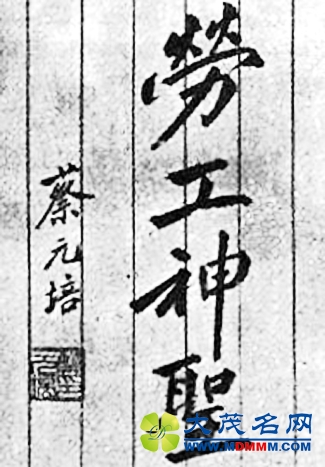 勞工神聖
蔡元培
大茂名网
www.MDMMM.com